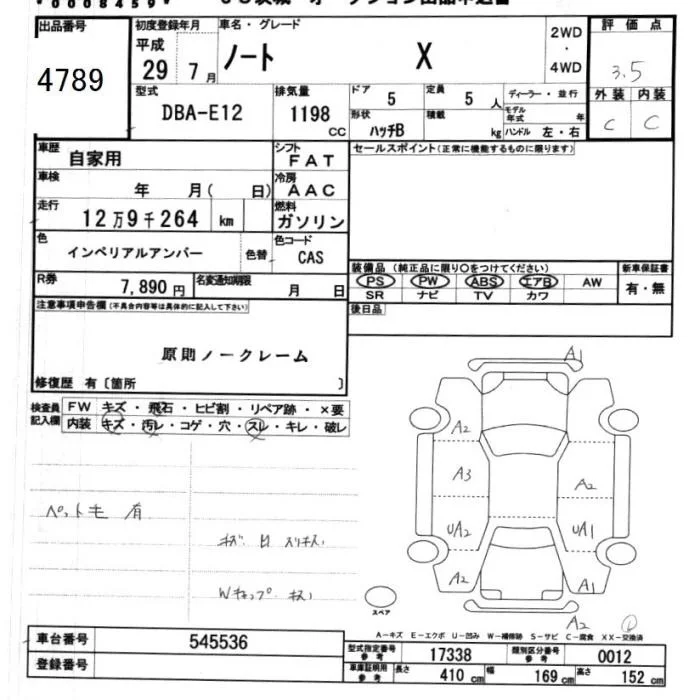 *0008459*
出品番号 4789
初度登録年月 平成 29 7月
車名・グレード ノート X
2WD ・ 4WD
評価点 3.5
外装 内装
C C
型式 DBA-E12
排気量 1198 CC
ドア 5
定員 5 人
形状 ハッチB
積載 kg
ディーラー・並行
モデル年式 年
ハンドル 左・右
車歴 自家用
シフト FAT
セールスポイント(正常に機能するものに限ります)
車検 年 月( 日)
冷房 AAC
走行 12万9千264 km
燃料 ガソリン
色 インペリアルアンバー
色替
色コード CAS
R券 7,890円
名変通知期限 月 日
装備品 (純正品に限り○をつけてください)
PS PW ABS エアB AW
SR ナビ TV カワ
新車保証書
有・無
後日品
注意事項申告欄(不具合内容等は具体的に記入して下さい)
原則ノークレーム
修復歴 有〔箇所 〕
検査員記入欄
FW キズ・飛石・ヒビ割・リペア跡・×要
内装 キズ・汚レ・コゲ・穴・スレ・キレ・破レ
ペット毛 有
A1
A2
A3 A2
UA2 UA1
A2 A1
A2
スペア
A-キズ E-エクボ U-凹み W-補修跡 S-サビ C-腐食 XX-交換済
車台番号 545536
登録番号
型式指定番号参考 17338
類別区分番号参考 0012
車庫証明用参考 長さ 410 cm 幅 169 cm 高さ 152 cm